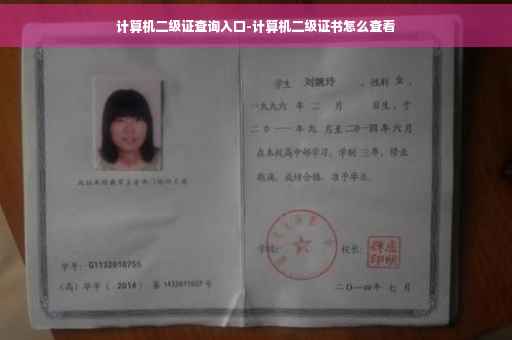 计算机二级证查询入口-计算机二级证书怎么查看
学生 刘婉玲 ，性别 女 ，
一九九六 年 二 月 日生，于
二〇一一 年 九 月至 二〇一四 年 六 月
在本校高中部学习，学制 三 年，修业
期满，成绩合格，准予毕业。
学号： G1132010755
（高）毕字（ 2014 ）第 1432011027 号
学校：
校长：
二〇一四年 七 月